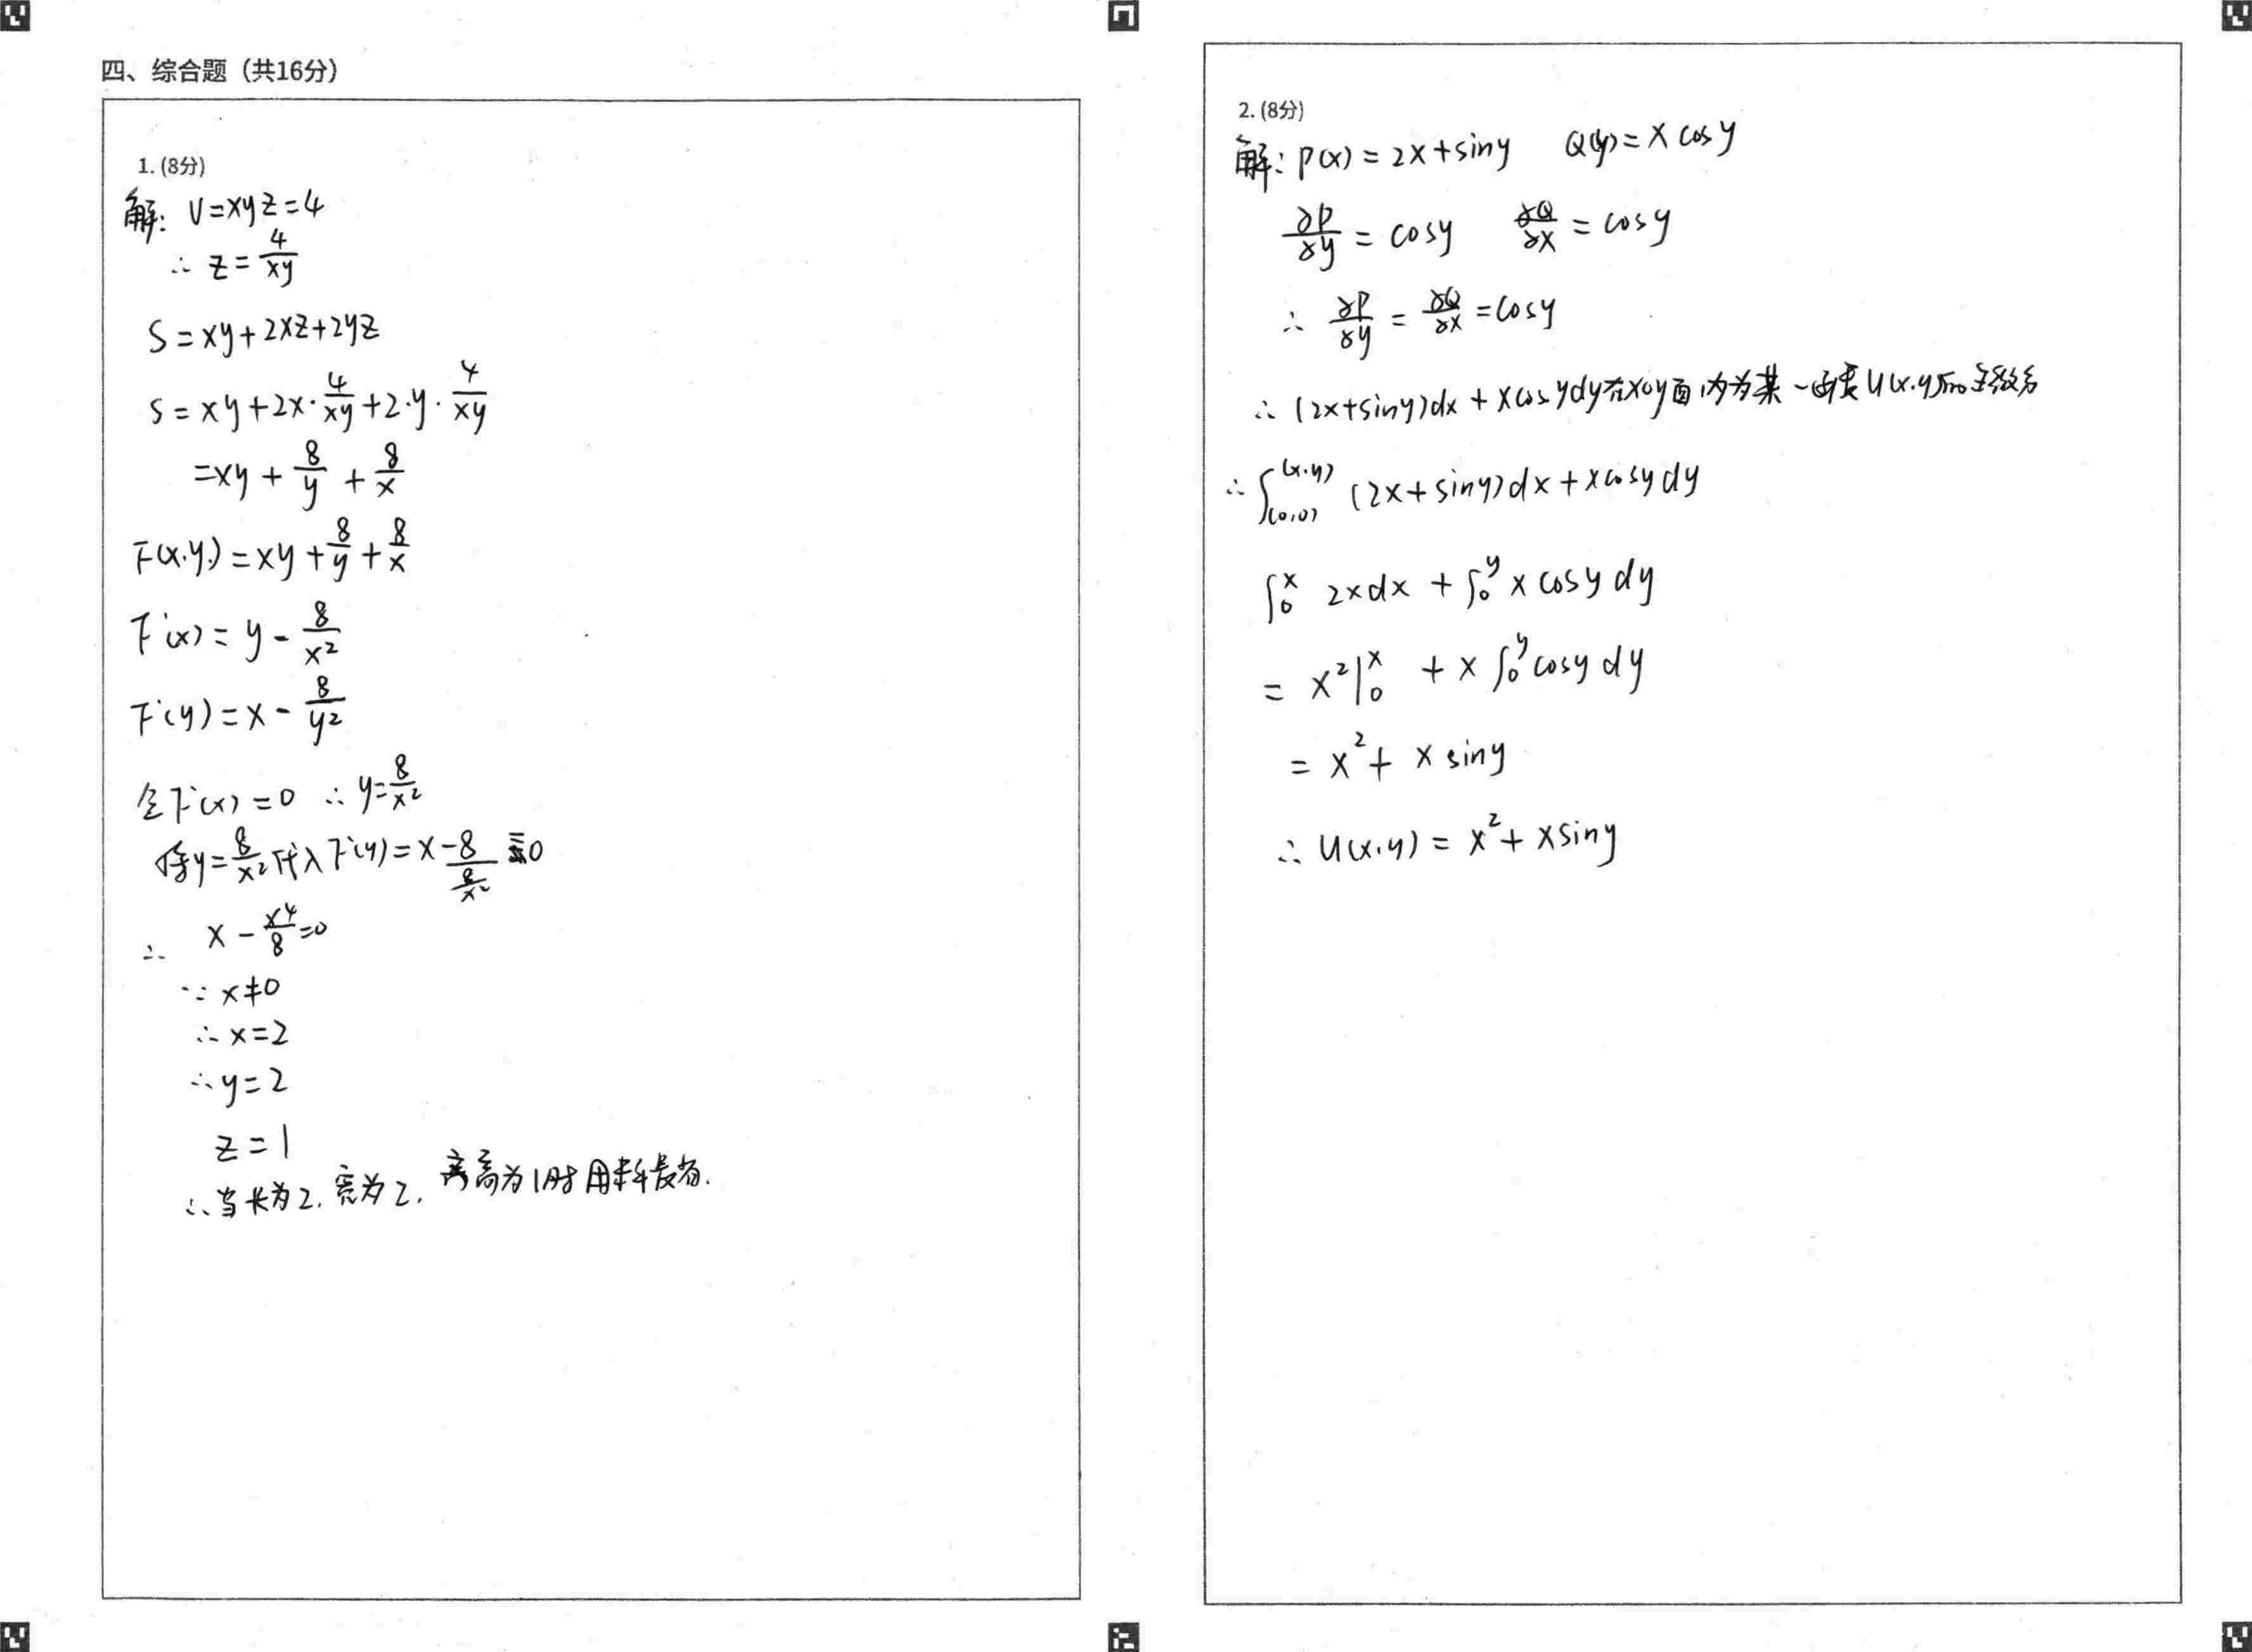 四、综合题（共16分）
1. (8分)
解: V=xyz=4
∴ z=4/xy
S=xy+2xz+2yz
S=xy+2x·4/xy+2·y·4/xy
=xy+8/y+8/x
F(x.y.)=xy+8/y+8/x
F'(x)=y-8/x²
F'(y)=x-8/y²
令F'(x)=0 ∴y=8/x²
将y=8/x²代入F'(y)=x-8/(8/x²) =0
∴ x-x⁴/8=0
∵x≠0
∴x=2
∴y=2
z=1
∴当长为2.宽为2.高为1时用料最省.
2. (8分)
解: P(x)=2x+siny Q(y)=xcosy
∂P/∂y=cosy ∂Q/∂x=cosy
∴ ∂P/∂y=∂Q/∂x=cosy
∴(2x+siny)dx+xcosydy在xoy面内为某一函数u(x.y)的全微分
∴∫(0,0)(x.y)(2x+siny)dx+xcosydy
∫₀ˣ 2xdx+∫₀ʸ xcosydy
=x²|₀ˣ+x∫₀ʸcosydy
=x²+xsiny
∴u(x.y)=x²+xsiny